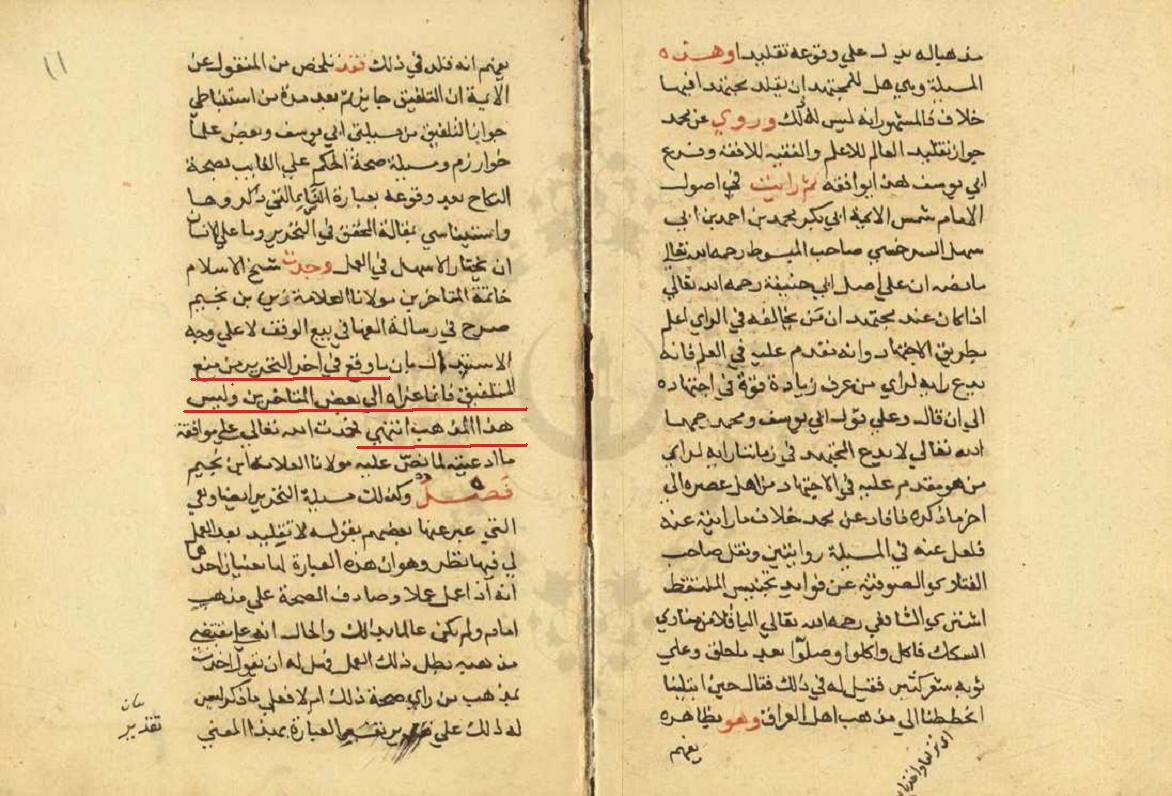 مذهباله يدل علي وقوعه تقليدا وهذه
المسلة وهي هل للمجتهد ان يقلد مجتهدا فيها
خلاف فالمشهور انه ليس له ذلك وروي عن محمد
جواز تقليد العالم للاعلم والفقيه للافقه وفرع
ابي يوسف هذا يوافقه ثم رايت في اصول
الامام شمس الايمة ابي بكر محمد بن احمد بن ابي
سهل السرخسي صاحب المبسوط رحمه الله تعالي
ما نصه ان علي اصل ابي حنيفة رحمه الله تعالي
اذا كان عند مجتهد ان من يخالفه في الراي اعلم
بطريق الاجتهاد وانه مقدم عليه في العلم فانه
يدع رايه لراي من عرف زيادة قوة في اجتهاده
الي ان قال وعلي قول ابي يوسف ومحمد رحمهما
الله تعالي لا يدع المجتهد في زماننا رايه لراي
من هو مقدم عليه في الاجتهاد من اهل عصره الي
اخر ما ذكره فافاد عن محمد خلاف ما رايته عنه
فلعل عنه في المسلة روايتين ونقل صاحب
الفتاوي الصوفية عن فوايد تجنيس الملتقط
اشتري الشافعي رحمه الله تعالي الباقلا من منادي
السكك فاكل واكلوا وصلوا بعد ما حلق وعلي
ثوبه شعر كثير فقيل له في ذلك فقال حين ابتلينا
انحططنا الي مذهب اهل العراق وهو بظاهره
يفهم
١١
يفهم انه قلد في ذلك فقد تلخص من المنقول عن
الايمة ان التلفيق جايز ثم بعد مدة من استنباطي
جواز التلفيق من مسيلتي ابي يوسف وبعض علما
خوارزم ومسيلة صحة الحكم علي الغايب بصحة
النكاح بعد وقوعه بعبارة النسا التي ذكروها
واستيناسي بمقالة المحقق في التحرير وما علي الانسان
ان يختار الاسهل في العمل وجدت شيخ الاسلام
خاتمة المتاخرين مولانا العلامة زين بن نجيم
صرح في رسالة الفها في بيع الوقف لا علي وجه
الاستبدال بان ما وقع في اخر التحرير من منع
التلفيق فانما عزاه الي بعض المتاخرين وليس
هذا المذهب انتهي فحمدت الله تعالي علي موافقة
ما ادعيته لما نص عليه مولانا العلامه ابن نجيم
فصل وكذلك مسيلة التحرير ايضا وهي
التي عبر عنها بعضهم بقوله لا تقليد بعد العمل
لي فيها نظر وهو ان هذه العبارة لها معنيان احدها
انه اذا عمل عملا وصادف الصحة علي مذهب
امام ولم يكن عالما بذلك والحال انه علي مقتضي
مذهبه بطل ذلك العمل فهل له ان يقول اخذت
بمذهب من راي صحة ذلك ام لا فعلي ما ذكر ليس
له ذلك علي تقدير تفسير العبارة بهذا المعني
تقدير